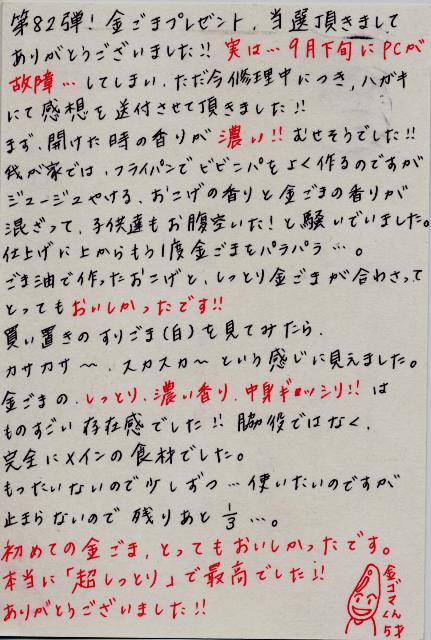 第82弾！金ごまプレゼント、当選頂きまして
ありがとうございました!! 実は…9月下旬にPCが
故障…してしまい、ただ今修理中につき、ハガキ
にて感想を送付させて頂きました!!
まず、開けた時の香りが濃い!! むせそうでした!!
我が家では、フライパンでビビンバをよく作るのですが
ジュージュやける、おこげの香りと金ごまの香りが
混ざって、子供達もお腹空いた！と騒いでいました。
仕上げに上からもう1度金ごまをパラパラ…。
ごま油で作ったおこげと、しっとり金ごまが合わさって
とってもおいしかったです!!
買い置きのすりごま(白)を見てみたら、
カサカサ〜、スカスカ〜という感じに見えました。
金ごまの、しっとり、濃い香り、中身ギッシリ!!は
ものすごい存在感でした!! 脇役ではなく、
完全にメインの食材でした。
もったいないので少しずつ…使いたいのですが
止まらないので残りあと1/3…。
初めての金ごま、とってもおいしかったです。
本当に「超しっとり」で最高でした!!
ありがとうございました!!
金ゴマくん
5才